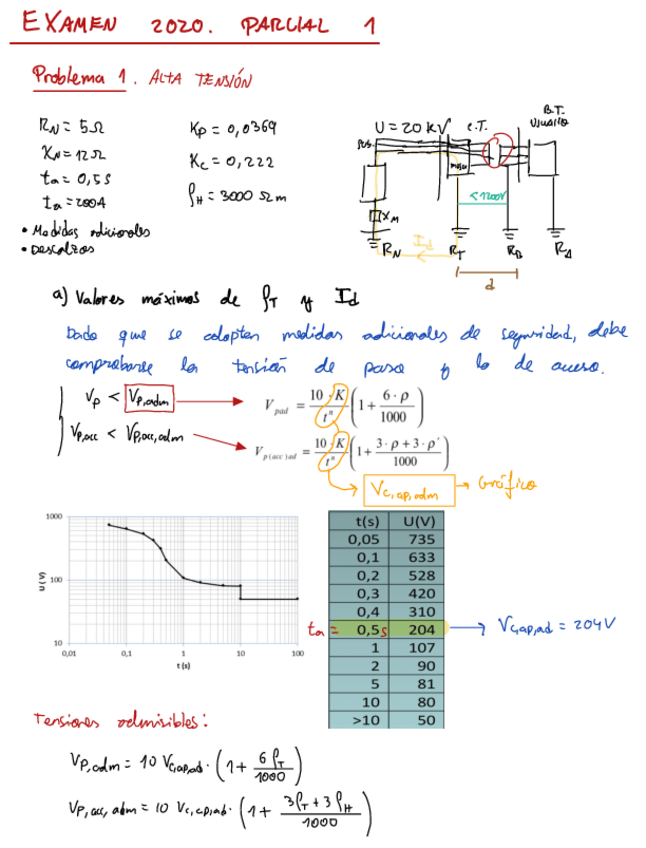 EXAMEN 2020. PARCIAL 1
Problema 1. ALTA TENSIÓN
R_N = 5 Ω
X_N = 12 Ω
t_a = 0,5 s
I_a = 200A
• Medidas adicionales
• Descalzos
K_P = 0,0369
K_C = 0,222
ρ_H = 3000 Ωm
U = 20 kV
C.T.
B.T.
Usuario
<1200V
X_M
I_d
R_N
R_T
R_B
R_A
d
a) Valores máximos de ρ_T y I_d
Dado que se adoptan medidas adicionales de seguridad, debe
comprobarse la tensión de paso y la de acceso.
V_P < V_P,adm
V_pad = 10·K/t^n (1 + 6·ρ/1000)
V_P,acc < V_P,acc,adm
V_p(acc)ad = 10·K/t^n (1 + 3·ρ+3·ρ'/1000)
V_C,ap,adm → Gráfico
1000
100
10
U (V)
0,01 0,1 1 10 100
t (s)
t(s) U(V)
0,05 735
0,1 633
0,2 528
0,3 420
0,4 310
t_a = 0,5s 204 → V_C,ap,ad = 204V
1 107
2 90
5 81
10 80
>10 50
Tensiones admisibles:
V_P,adm = 10 V_C,ap,ad · (1 + 6ρ_T/1000)
V_P,acc,adm = 10 V_C,ap,ad · (1 + 3ρ_T + 3ρ_H/1000)